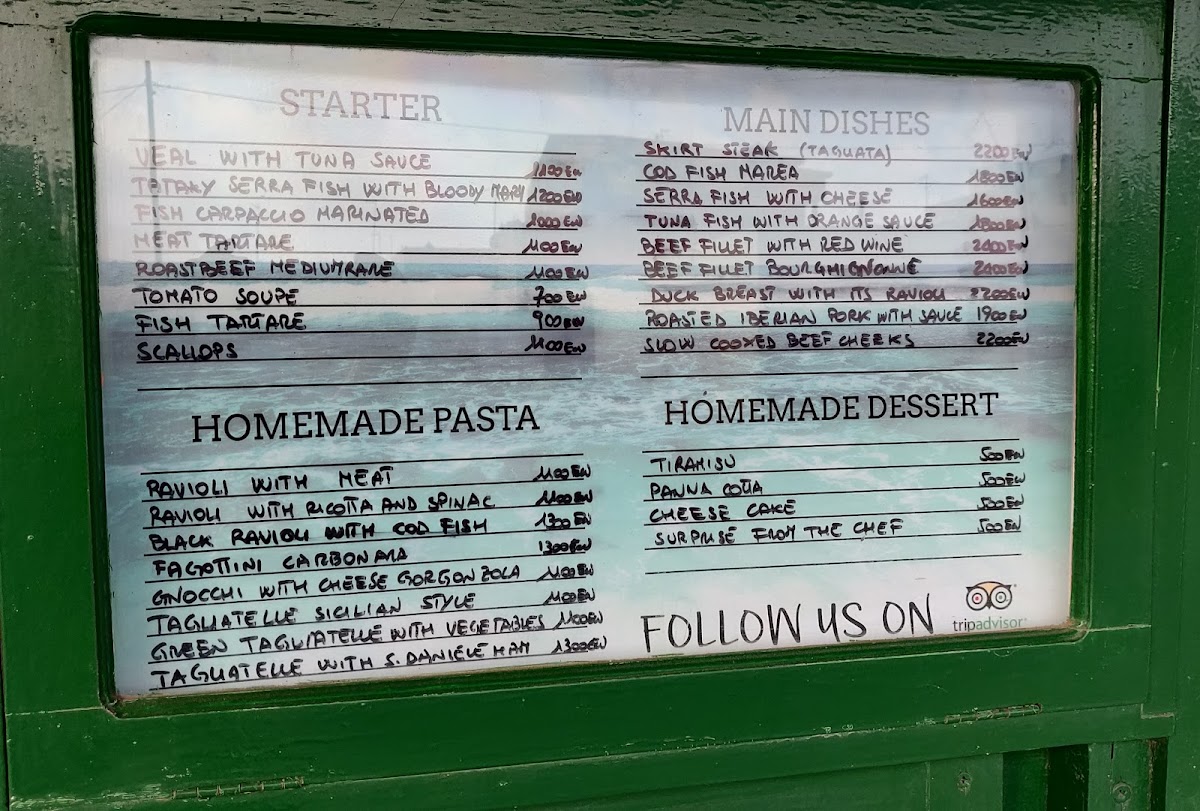 STARTER
VEAL WITH TUNA SAUCE 1100 EW
TATAKY SERRA FISH WITH BLOODY MARY 1200 EW
FISH CARPACCIO MARINATED 1000 EW
MEAT TARTARE 1100 EW
ROASTBEEF MEDIUMRARE 1100 EW
TOMATO SOUPE 700 EW
FISH TARTARE 900 EW
SCALLOPS 1100 EW
HOMEMADE PASTA
RAVIOLI WITH MEAT 1100 EW
RAVIOLI WITH RICOTTA AND SPINAC 1100 EW
BLACK RAVIOLI WITH COD FISH 1300 EW
FAGOTTINI CARBONARA 1300 EW
GNOCCHI WITH CHEESE GORGONZOLA 1100 EW
TAGLIATELLE SICILIAN STYLE 1100 EW
GREEN TAGLIATELLE WITH VEGETABLES 1100 EW
TAGLIATELLE WITH S. DANIELE HAM 1300 EW
MAIN DISHES
SKIRT STEAK (TAGLIATA) 2200 EW
COD FISH MAREA 1800 EW
SERRA FISH WITH CHEESE 1600 EW
TUNA FISH WITH ORANGE SAUCE 1800 EW
BEEF FILLET WITH RED WINE 2400 EW
BEEF FILLET BOURGHIGNONNE 2400 EW
DUCK BREAST WITH ITS RAVIOLI 2200 EW
ROASTED IBERIAN PORK WITH SAUCE 1900 EW
SLOW COOKED BEEF CHEEKS 2200 EW
HOMEMADE DESSERT
TIRAMISU 500 EW
PANNA COTTA 500 EW
CHEESE CAKE 500 EW
SURPRISE FROM THE CHEF 500 EW
FOLLOW US ON
tripadvisor